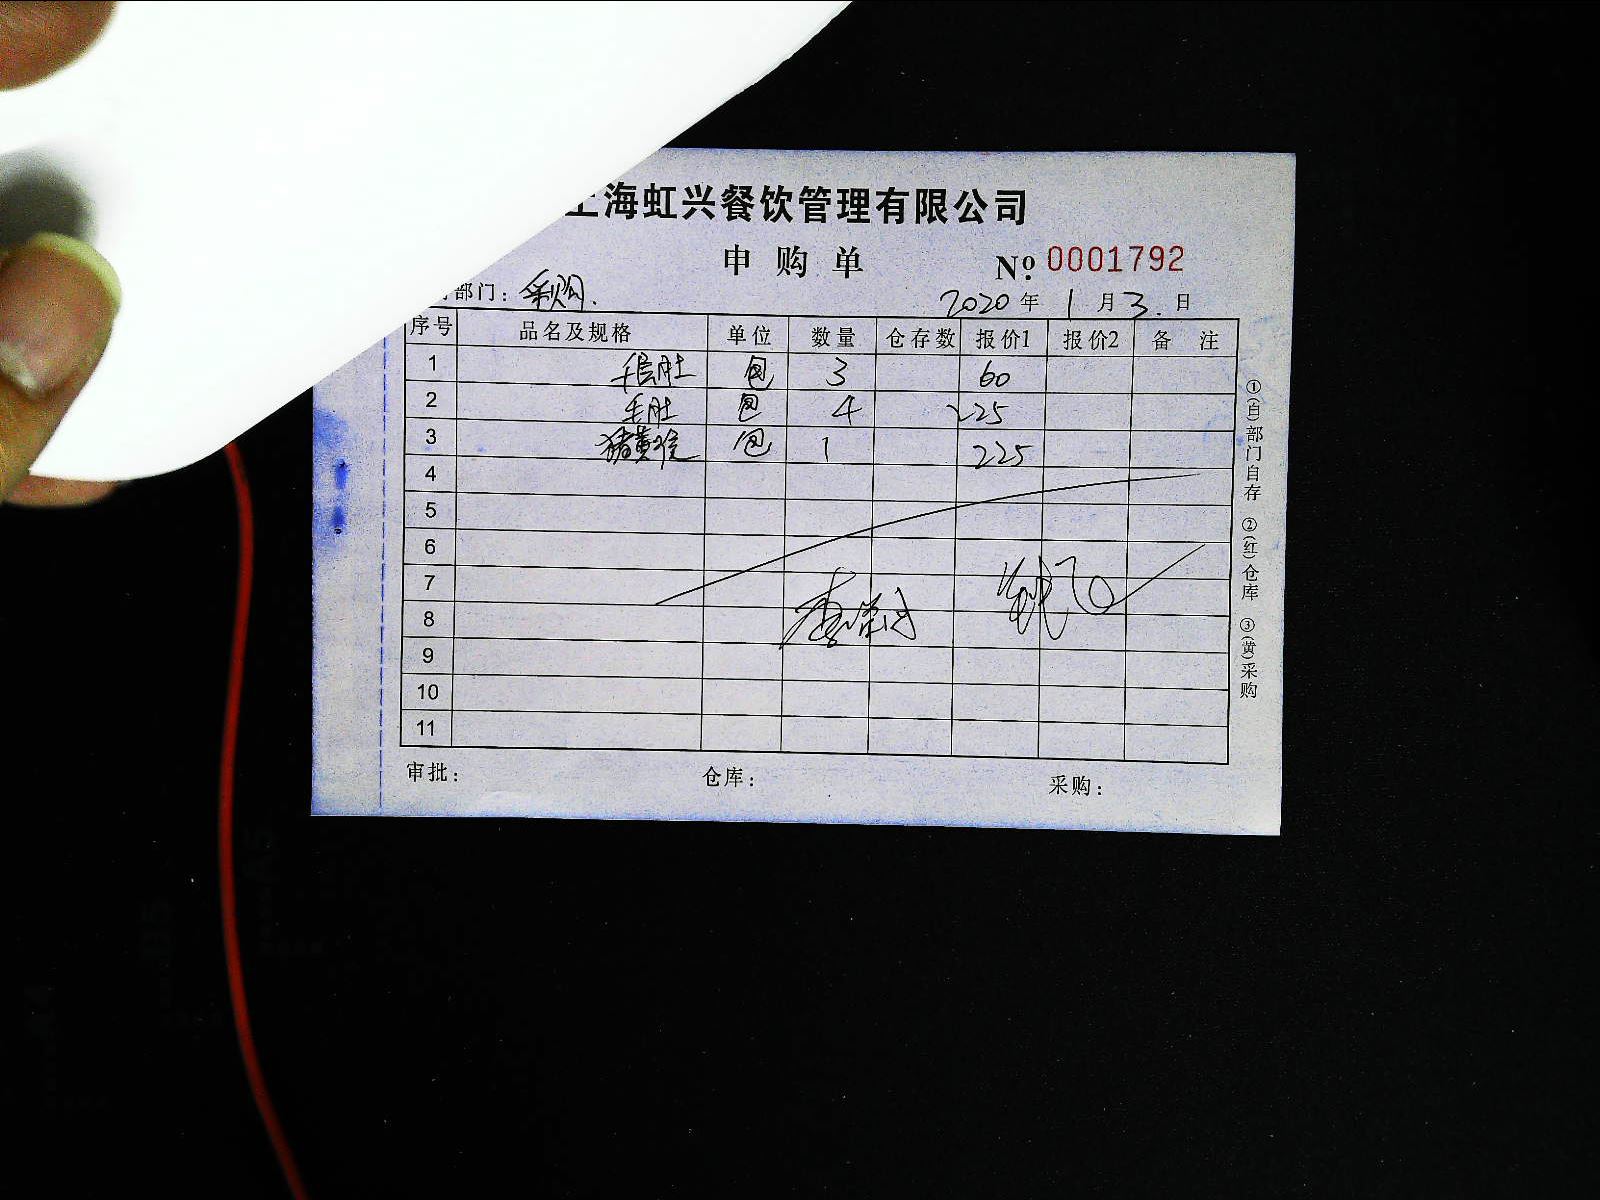 上海虹兴餐饮管理有限公司
申购单 Nº 0001792
部门：采购. 2020年1月3.日
序号 品名及规格 单位 数量 仓存数 报价1 报价2 备注
1 千层肚 包 3 60
2 毛肚 包 4 225
3 猪黄喉 包 1 225
4
5
6
7
8
9
10
11
审批： 仓库： 采购：
①(白)部门自存 ②(红)仓库 ③(黄)采购